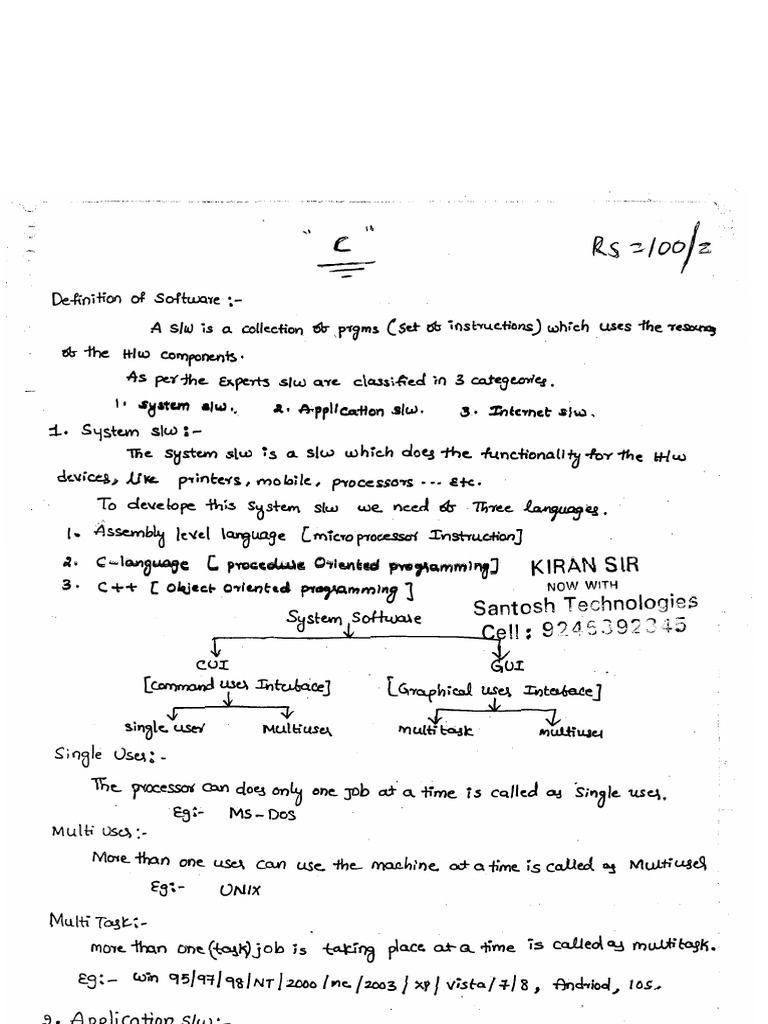 " C "
RS =100/=
Definition of Software :-
A S/w is a collection of prgms (Set of instructions) which uses the resources
of the H/w components.
As per the Experts s/w are classified in 3 categeories.
1. System s/w. 2. Application s/w. 3. Internet s/w.
1. System s/w :-
The system s/w is a s/w which does the functionality for the H/w
devices, like printers, mobile, processors --- Etc.
To develope this System s/w we need of Three languages.
1. Assembly level language [microprocessor Instruction]
2. C-language [ procedure Oriented programming]
KIRAN SIR
3. C++ [ Object Oriented programming ]
NOW WITH
Santosh Technologies
System Software
Cell : 9246392345
CUI GUI
[Command user Interface] [Graphical user Interface]
Single user Multiuser multi task multiuser
Single User:-
The processor can does only one job at a time is called as Single user.
Eg:- MS-DOS
Multi User:-
More than one user can use the machine at a time is called as Multiuser
Eg:- UNIX
Multi Task:-
more than one (task) job is taking place at a time is called as multitask.
Eg:- Win 95/97/98/NT/2000/me/2003/xp/Vista/7/8, Andriod, IOS.
2. Application S/w:-